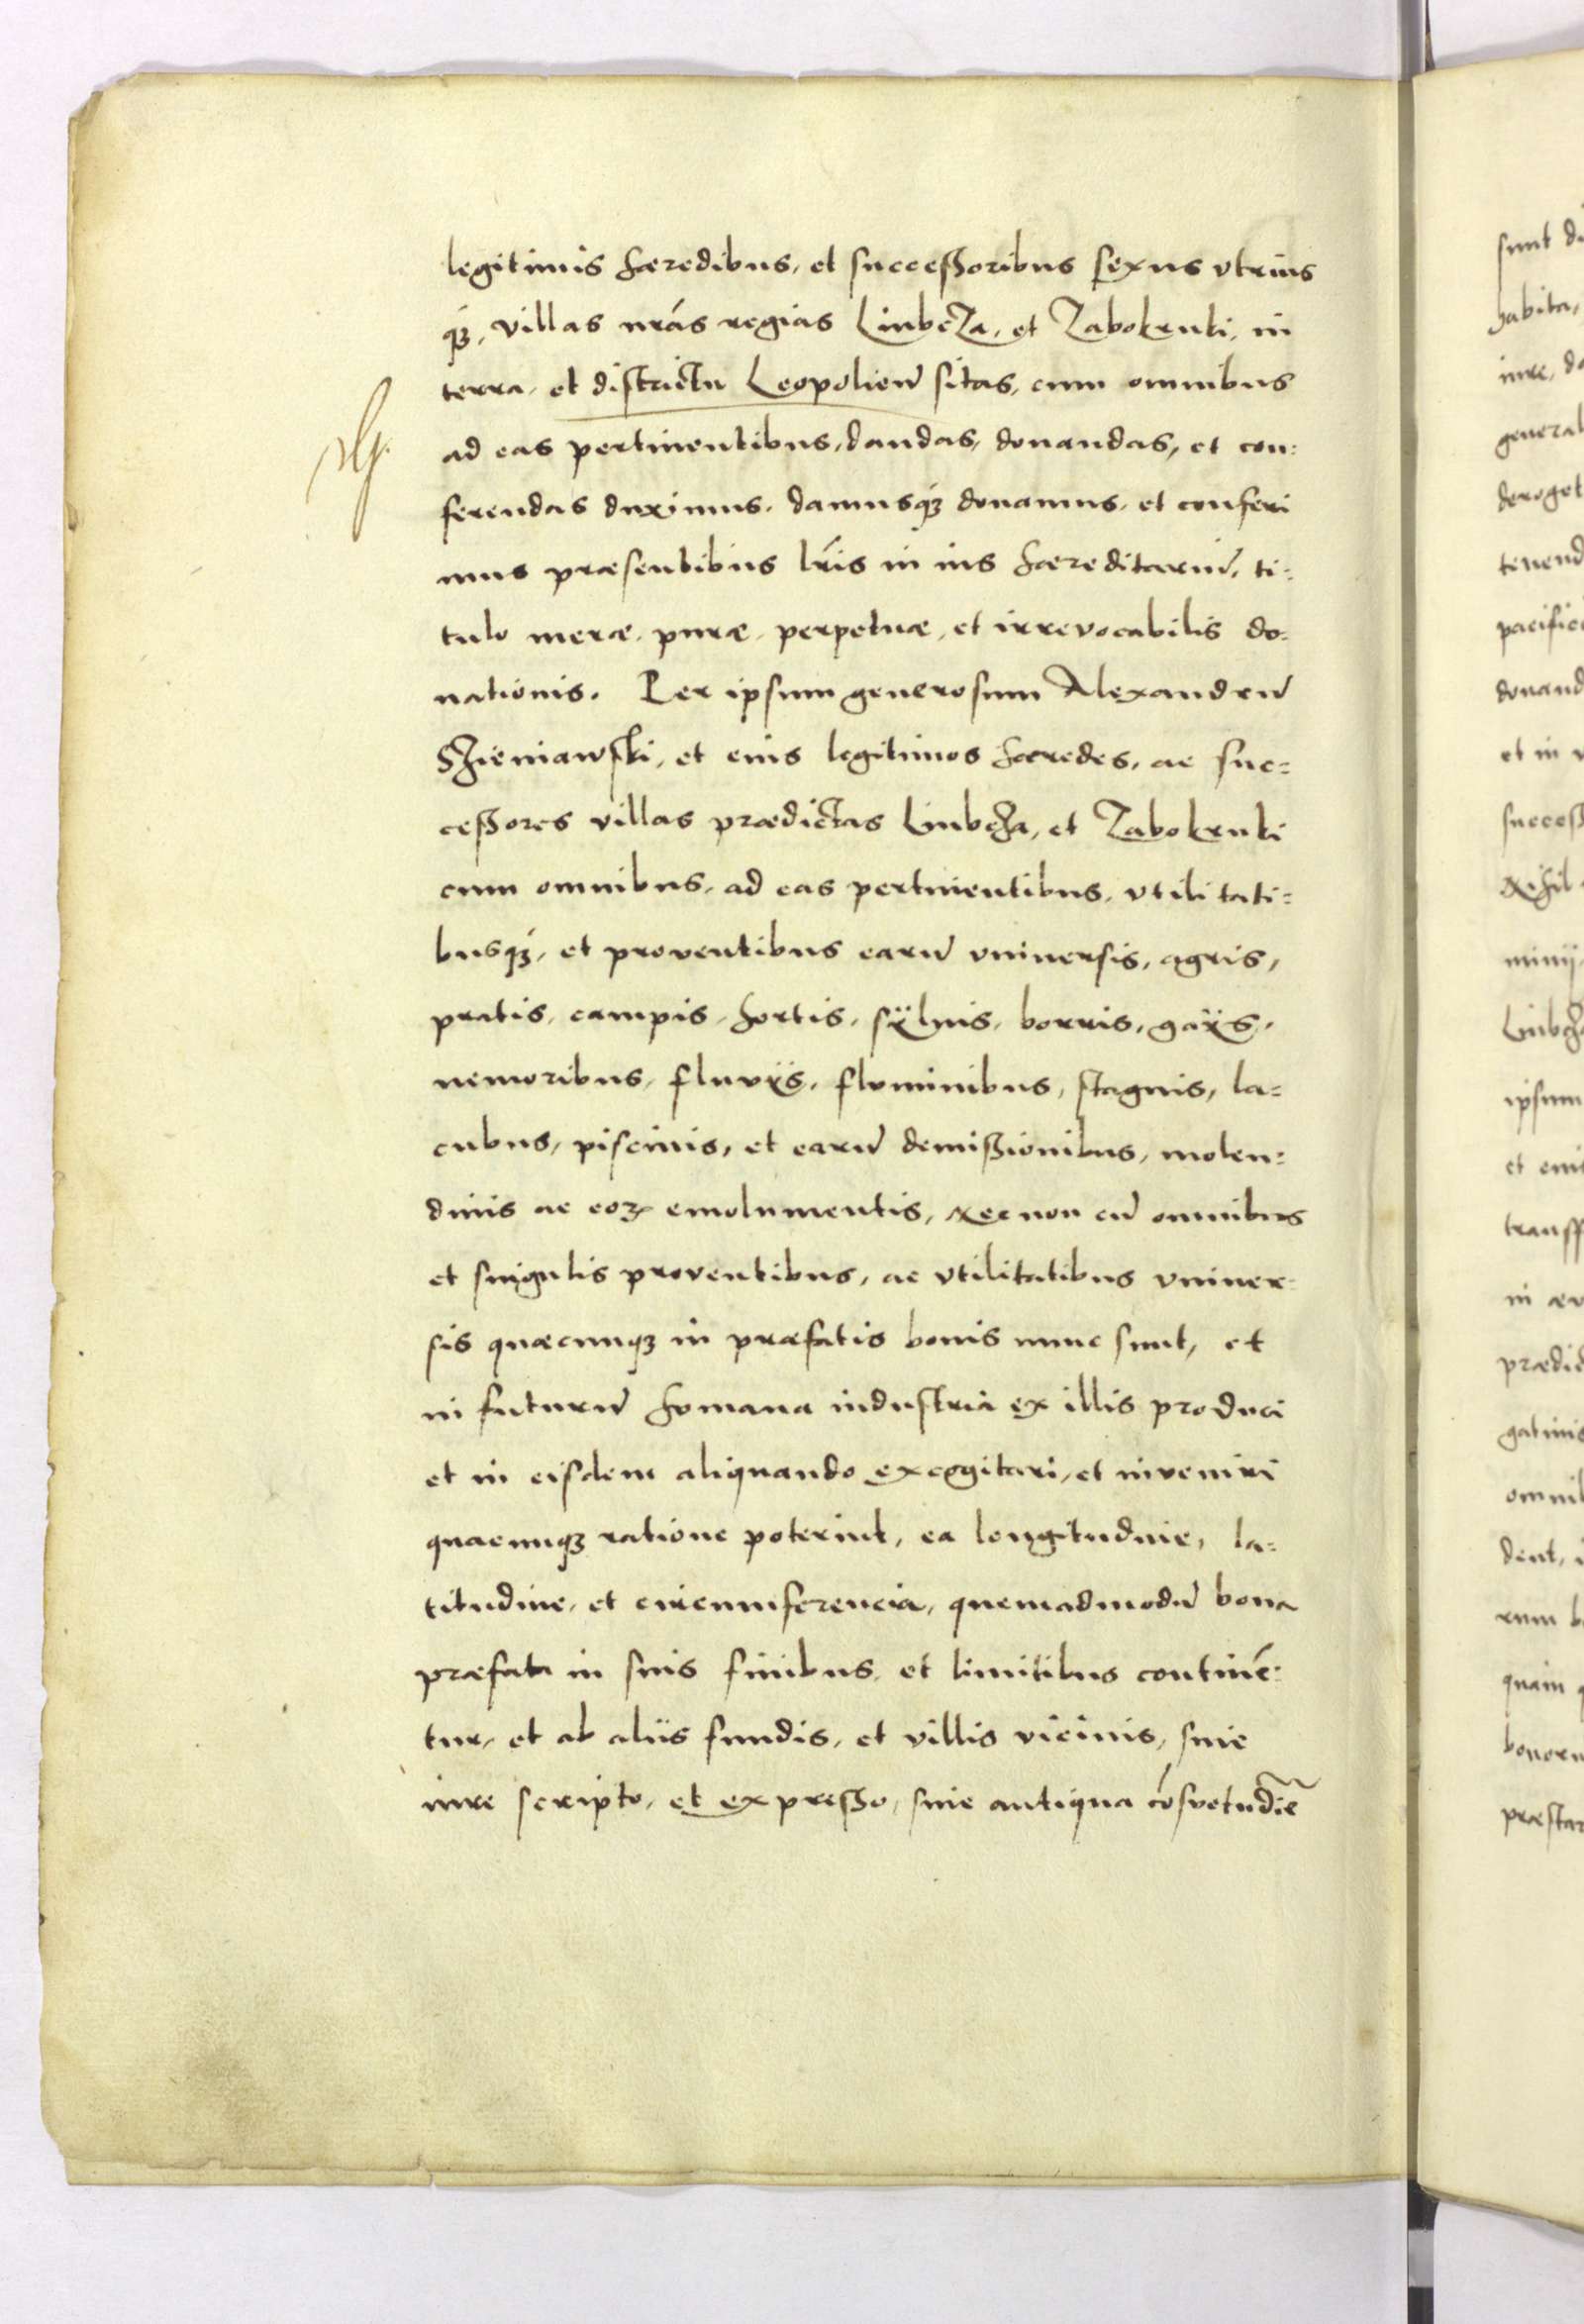 legitimis hæredibus, et successoribus sexus vtrius
q3, villas nrás regias Liubcza, et Zabokruki, in
terra, et districtu Leopolien̄ sitas, cum omnibus
ad eas pertinentibus, dandas, donandas, et con:
ferendas duximus. damusq3 donamus, et conferi
mus præsentibus lr̄is in ius hæreditariū, ti:
tulo meræ, puræ, perpetuæ, et irrevocabilis do:
nationis. Per ipsum generosum Alexandrū
Szieniawski, et eius legitimos hæredes, ac suc=
cessores villas prædictas Liubcza, et Zabokruki
cum omnibus, ad eas pertinentibus, vtilitati=
busq3, et proventibus earū vniuersis, agris,
pratis, campis, hortis, sÿluis, borris, gaÿs,
nemoribus, fluvÿs, fluminibus, stagnis, la=
cubus, piscinis, et earū demissionibus, molen:
dinis ac eoꝝ emolumentis, Necnon cū omnibus
et singulis proventibus, ac vtilitatibus vniuer-
sis quæcunq3 in præfatis bonis nunc sunt, et
in futurū homana industria ex illis produci
et in eisdem aliquando excogitari, et inveniri
quacunq3 ratione poterint, ea longitudine, la=
titudine, et circumferencia, quemadmodū bona
præfata in suis finibus, et limitibus continē:
tur, et ab aliis fundis, et villis vicinis, siue
iure scripto, et expresso, siue antiqua cōsvetudīe
sunt
habita,
iure,